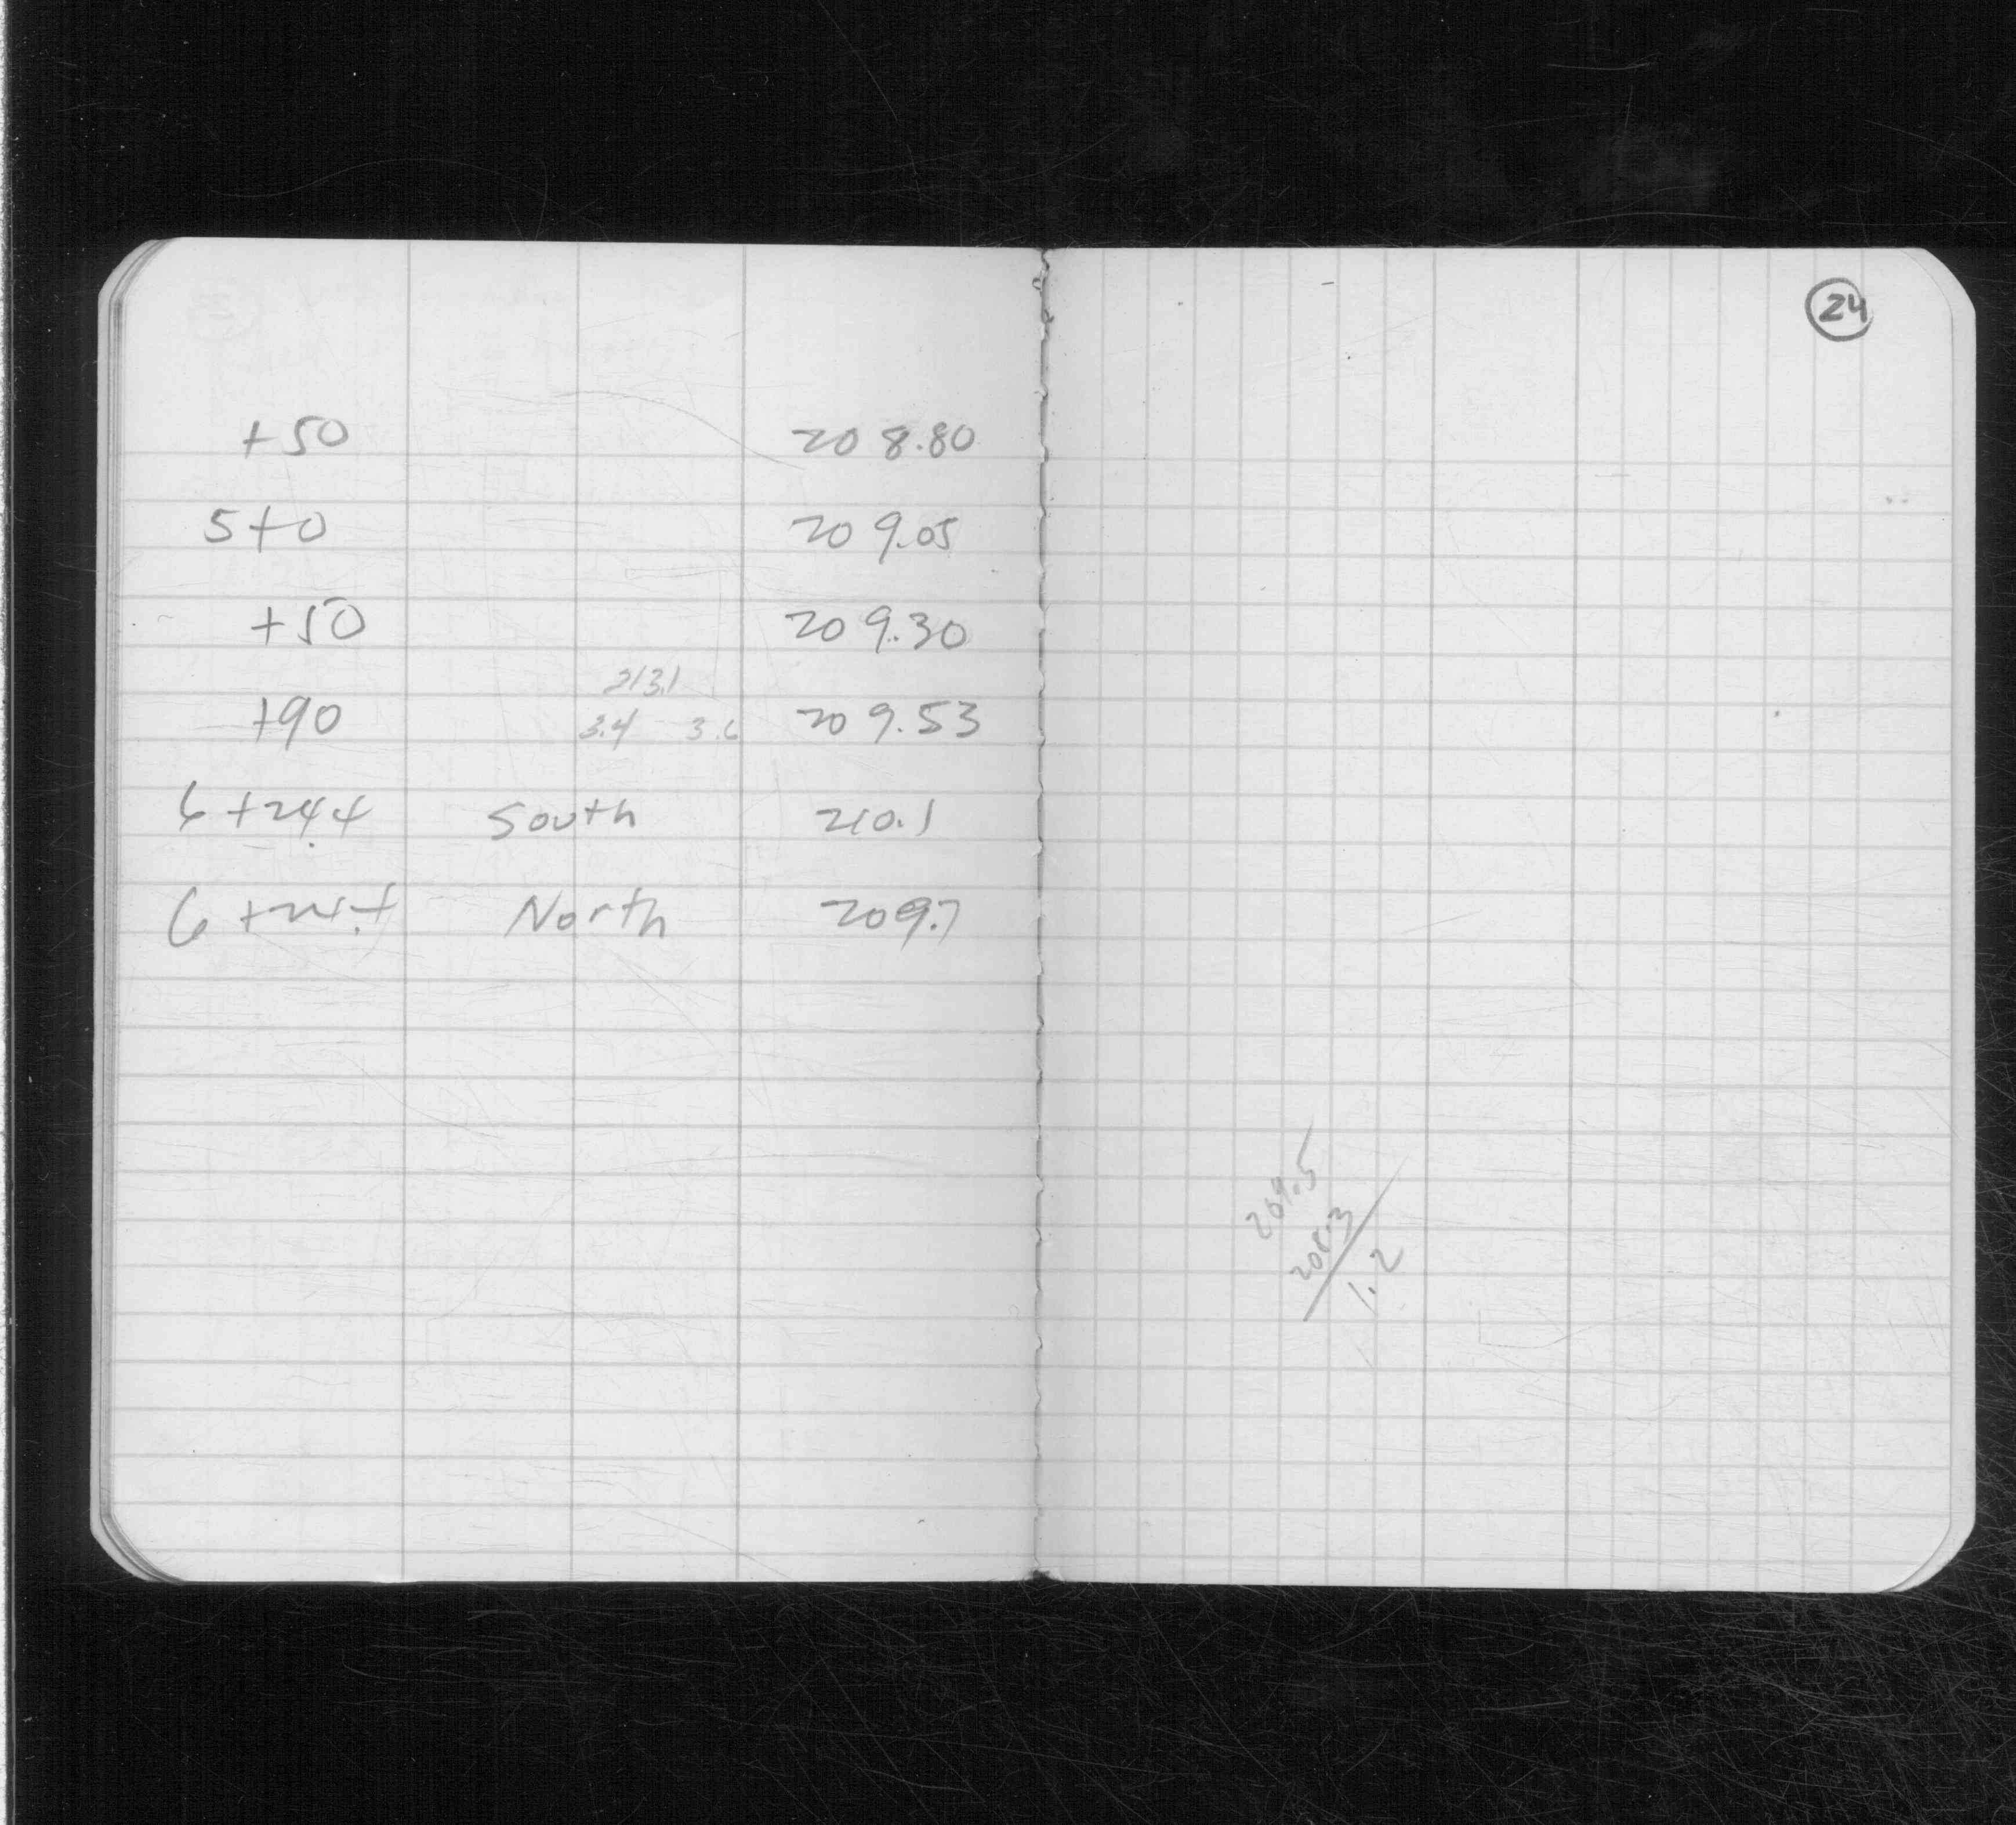 24
+50 208.80
5+0 209.05
+50 209.30
213.1
+90 3.4 3.6 209.53
6+24.4 South 210.1
6+24.4 North 209.7
209.5
208.3
1.2